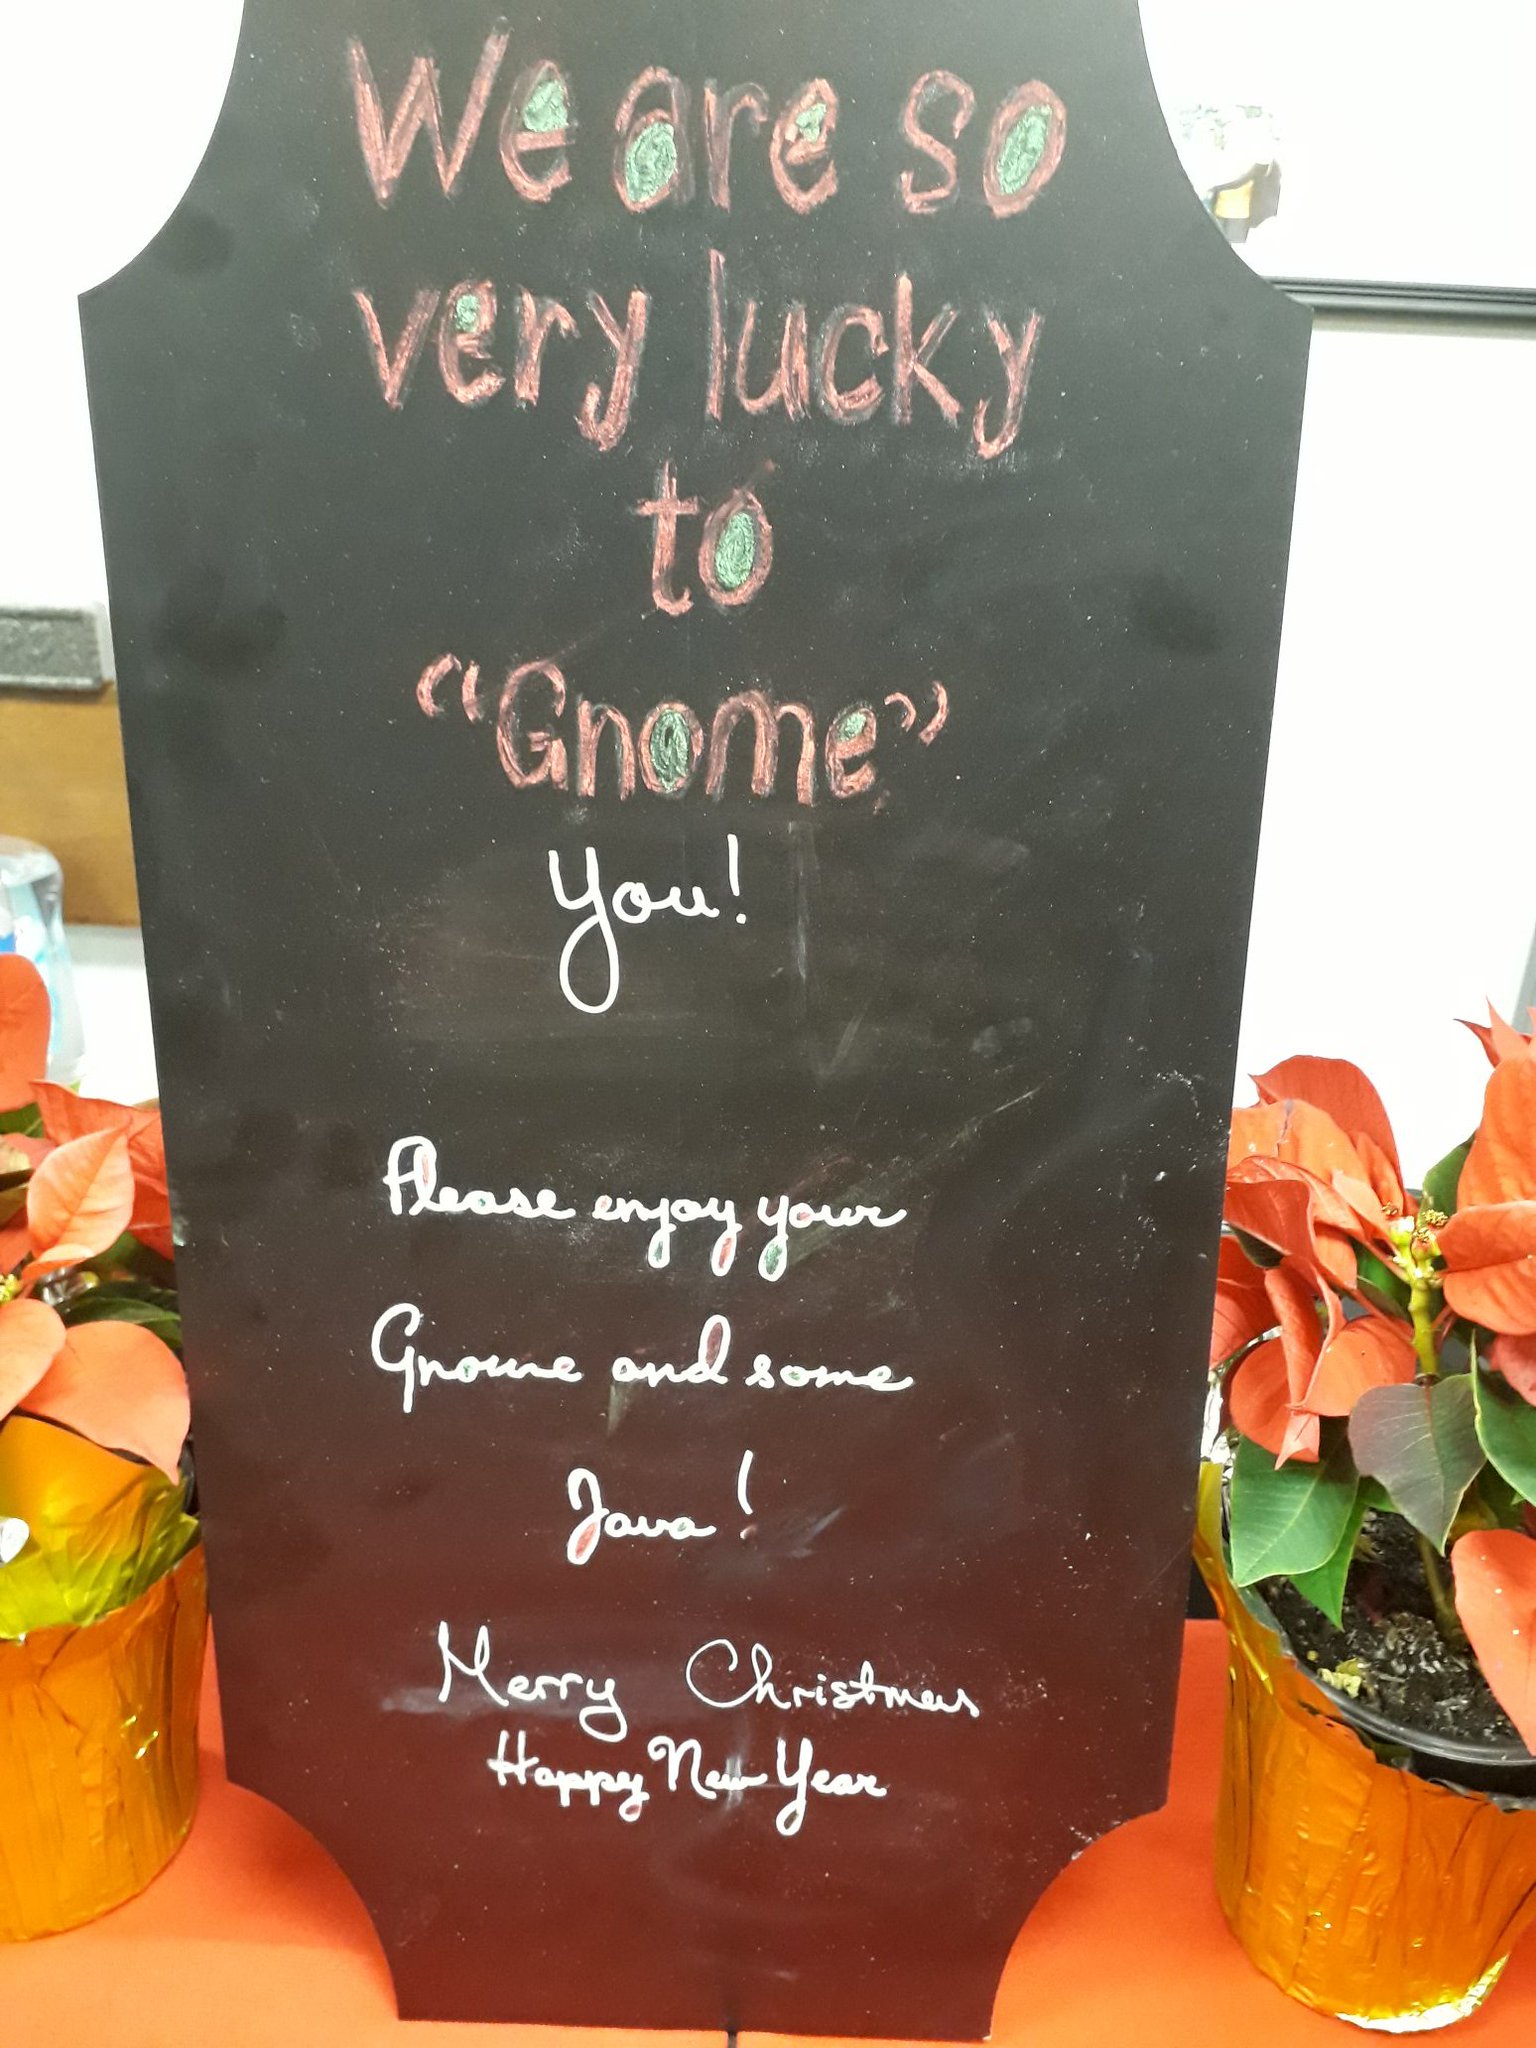 We are so
very lucky
to
"Gnome"
You!
Please enjoy your
Gnome and some
Java!
Merry Christmas
Happy New Year